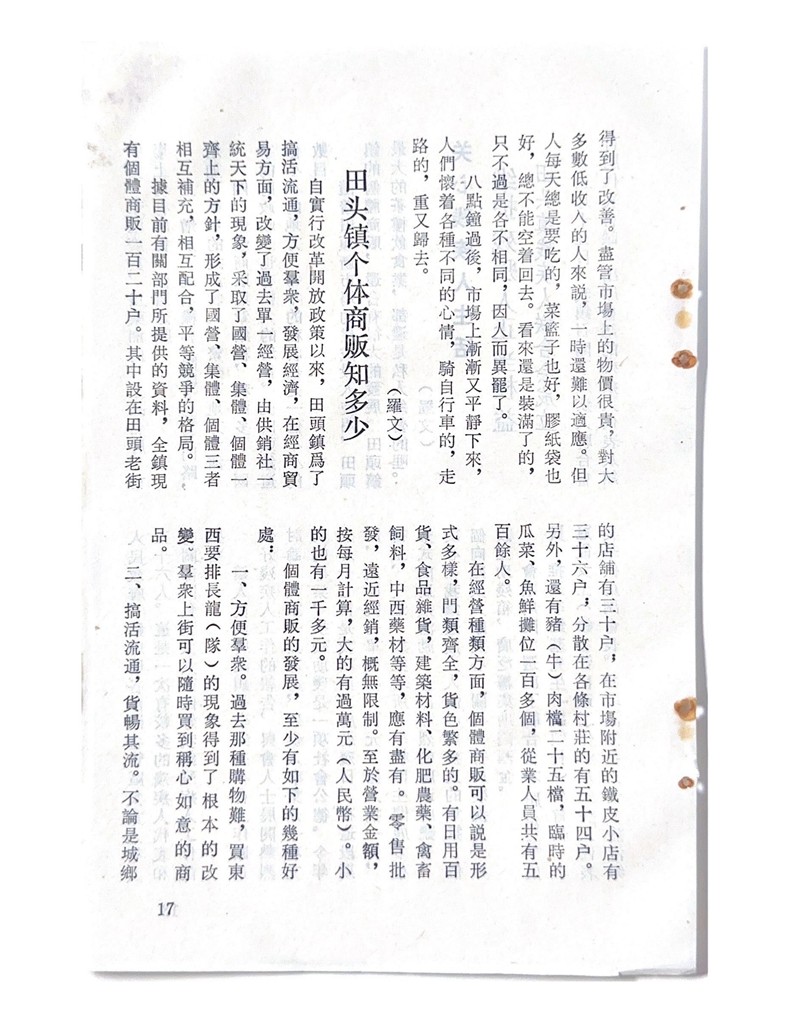 得到了改善。盡管市場上的物價很貴，對大
多數低收入的人來説，一時還難以適應。但
人每天總是要吃的，菜籃子也好，膠紙袋也
好，總不能空着回去。看來還是裝滿了的，
只不過是各不相同，因人而異罷了。
八點鐘過後，市場上漸漸又平靜下來，
人們懷着各種不同的心情，騎自行車的，走
路的，重又歸去。
田头镇个体商贩知多少
（羅文）
自實行改革開放政策以來，田頭鎮爲了
搞活流通，方便羣衆，發展經濟，在經商貿
易方面，改變了過去單一經營，由供銷社一
統天下的現象，采取了國營、集體、個體一
齊上的方針，形成了國營、集體、個體三者
相互補充，相互配合，平等競爭的格局。
據目前有關部門所提供的資料，全鎮現
有個體商販一百二十户。其中設在田頭老街
的店舖有三十户，在市場附近的鐵皮小店有
三十六户，分散在各條村莊的有五十四户。
另外，還有豬（牛）肉檔二十五檔，臨時的
瓜菜、魚鮮攤位一百多個，從業人員共有五
百餘人。
在經營種類方面，個體商販可以説是形
式多樣，門類齊全，貨色繁多的。有日用百
貨、食品雜貨，建築材料、化肥農藥、禽畜
飼料，中西藥材等等，應有盡有。零售批
發，遠近經銷，概無限制。至於營業金額，
按每月計算，大的有過萬元（人民幣）。小
的也有一千多元。
個體商販的發展，至少有如下的幾種好
處：
一、方便羣衆。過去那種購物難，買東
西要排長龍（隊）的現象得到了根本的改
變。羣衆上街可以隨時買到稱心如意的商
品。
二、搞活流通，貨暢其流。不論是城鄉
17